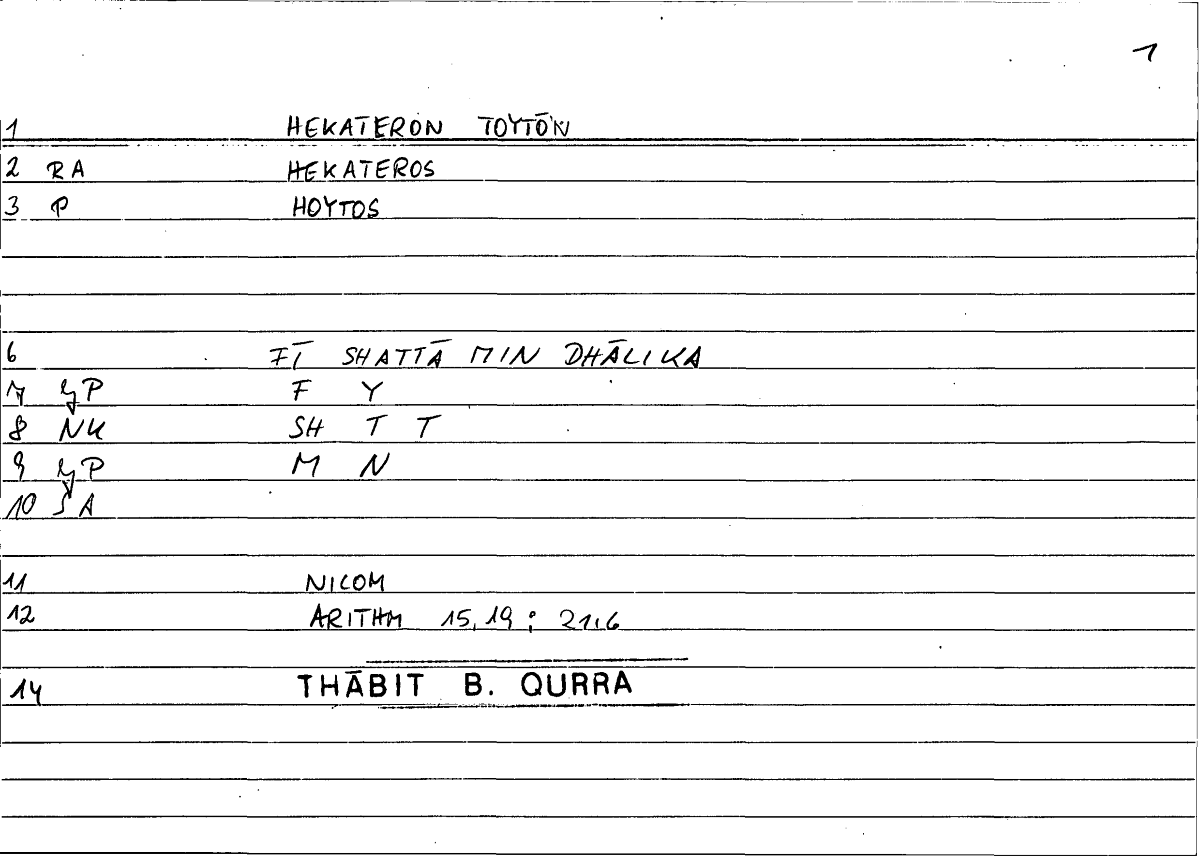 1
1 HEKATERON TOYTŌN
2 RA HEKATEROS
3 P HOYTOS
6 FĪ SHATTĀ MIN DHĀLIKA
7 GP F Y
8 NK SH T T
9 GP M N
10 SA
11 NICOM
12 ARITHM 15,19 ; 21,6
14 THĀBIT B. QURRA